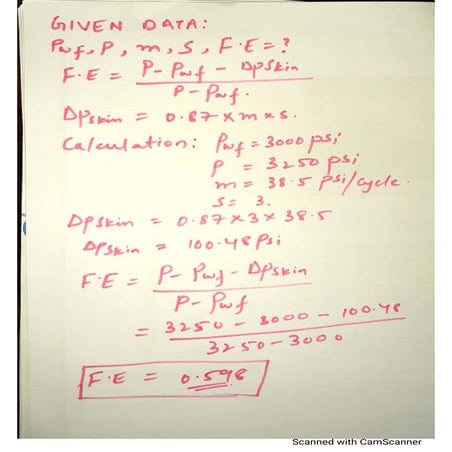 GIVEN DATA:
Pwf, P, m, S, F.E = ?
F.E = P - Pwf - ΔPSkin
P - Pwf.
ΔPskin = 0.87 x m x s.
Calculation: Pwf = 3000 psi
P = 3250 psi
m = 38.5 psi/cycle.
S = 3.
ΔPskin = 0.87 x 3 x 38.5
ΔPskin = 100.48 Psi
F.E = P - Pwf - ΔPskin
P - Pwf
= 3250 - 3000 - 100.48
3250 - 3000
F.E = 0.598
Scanned with CamScanner